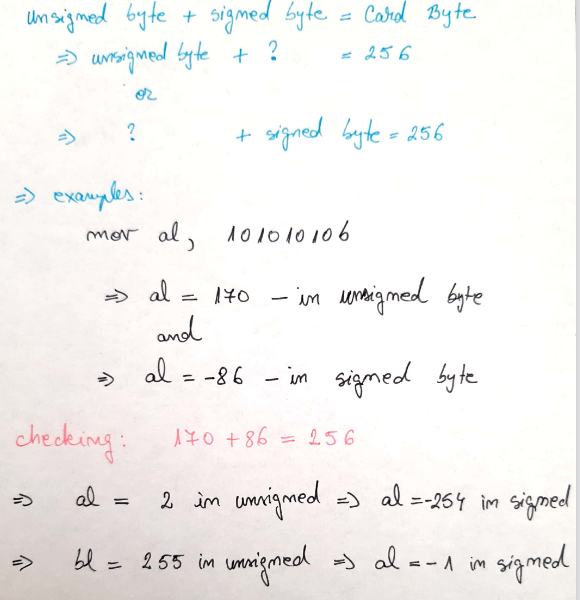 unsigned byte + signed byte = Card Byte
=> unsigned byte + ? = 256
or
=> ? + signed byte = 256
=> examples:
mov al, 10101010b
=> al = 170 - in unsigned byte
and
=> al = -86 - in signed byte
checking: 170 + 86 = 256
=> al = 2 in unsigned => al = -254 in signed
=> bl = 255 in unsigned => al = -1 in signed